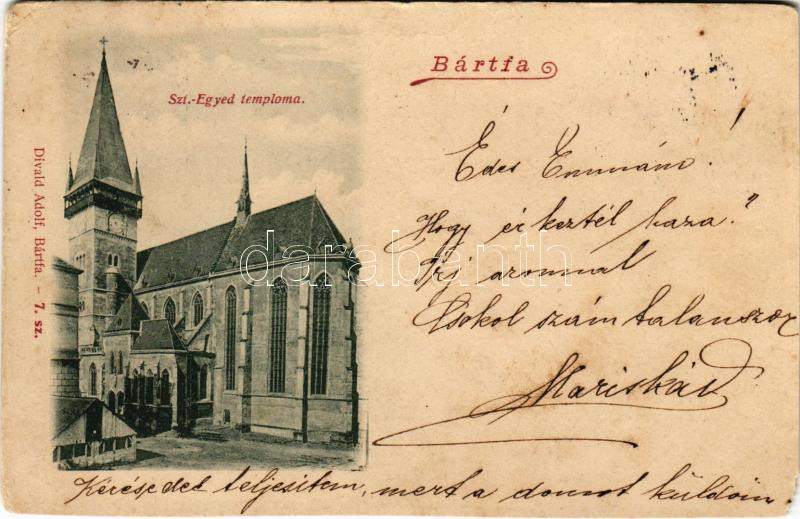 Bártfa
Szt.-Egyed temploma.
Divald Adolf, Bártfa. – 7. sz.
Édes Emmám!
Hogy érkeztél haza?
Írj azonnal
Csókol számtalanszor
Mariskád
Kérésedet teljesítem, mert a domot küldöm
darabanth